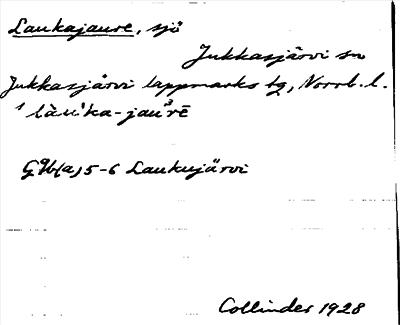 Laukajaure, sjö
Jukkasjärvi sn
Jukkasjärvi lappmarks tg, Norrb. l.
làu'ka-jaurē
G9b(a)5-6 Laukujärvi
Collinder 1928